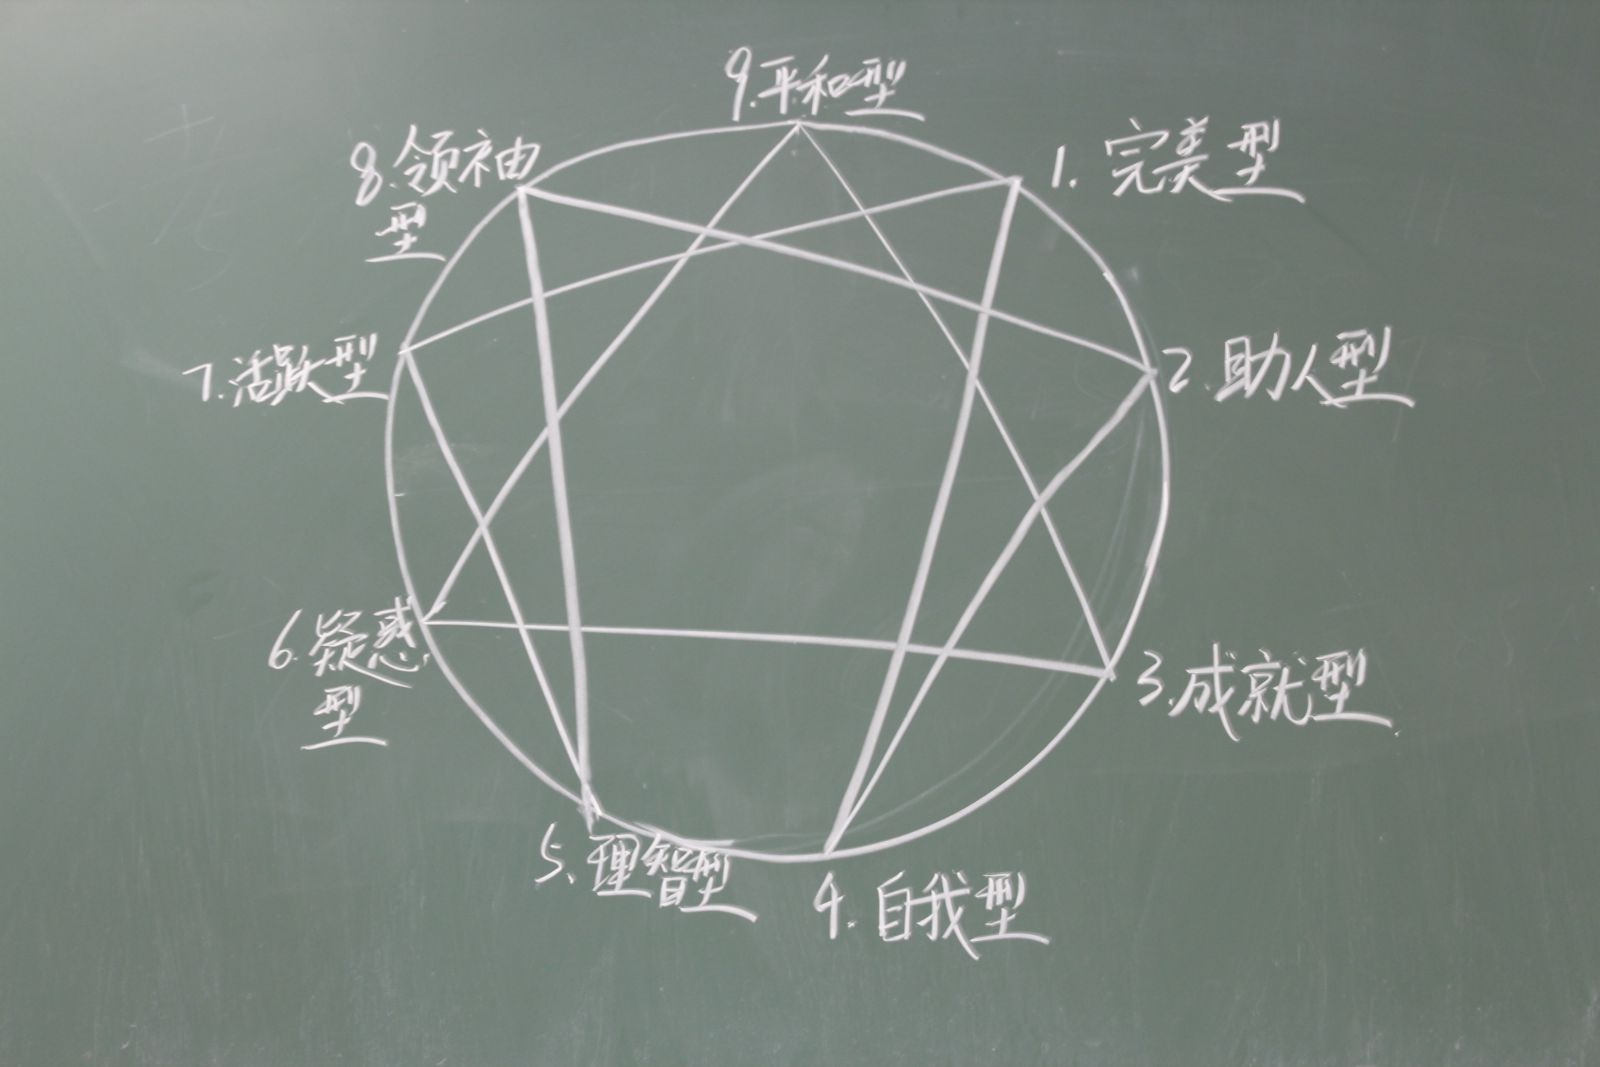 9.平和型
1. 完美型
2.助人型
3.成就型
4.自我型
5.理智型
6.疑惑
型
7.活跃型
8.领袖
型